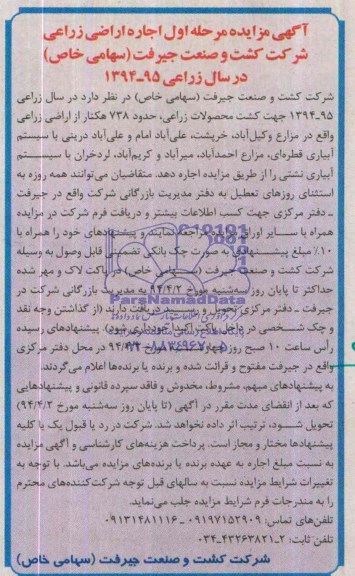 آگهی مزایده مرحله اول اجاره اراضی زراعی
شرکت کشت و صنعت جیرفت (سهامی خاص)
در سال زراعی ۹۵-۱۳۹۴
شرکت کشت و صنعت جیرفت (سهامی خاص) در نظر دارد در سال زراعی
۹۵-۱۳۹۴ جهت کشت محصولات زراعی، حدود ۷۳۸ هکتار از اراضی زراعی
واقع در مزارع وکیل‌آباد، خرپشت، علی‌آباد امام و علی‌آباد درینی با سیستم
آبیاری قطره‌ای، مزارع احمدآباد، میرآباد و کریم‌آباد، لردخران با سیستم
آبیاری نشتی را از طریق مزایده اجاره دهد. متقاضیان می‌توانند همه روزه به
استثنای روزهای تعطیل به دفتر مدیریت بازرگانی شرکت واقع در جیرفت
ـ دفتر مرکزی جهت کسب اطلاعات بیشتر و دریافت فرم شرکت در مزایده
همراه با سایر اوراق مراجعه نمایند و پیشنهادهای خود را همراه با
۱۰٪ مبلغ پیشنهادی به صورت چک بانکی تضمینی قابل وصول به وسیله
شرکت کشت و صنعت جیرفت (سهامی خاص) در پاکت لاک و مهر شده
حداکثر تا پایان روز سه‌شنبه مورخ ۹۴/۴/۲ به مدیریت بازرگانی شرکت در
جیرفت ـ دفتر مرکزی تحویل و رسید دریافت دارند (از گذاشتن وجه نقد
و چک شخصی در داخل پاکت اکیداً خودداری شود) پیشنهادهای رسیده
رأس ساعت ۱۰ صبح روز چهارشنبه مورخ ۹۴/۴/۳ در محل دفتر مرکزی
واقع در جیرفت مفتوح و قرائت شده و برنده یا برنده‌ها اعلام می‌گردند.
به پیشنهادهای مبهم، مشروط، مخدوش و فاقد سپرده قانونی و پیشنهادهایی
که بعد از انقضای مدت مقرر در آگهی (تا پایان روز سه‌شنبه مورخ ۹۴/۴/۲)
تحویل شود، ترتیب اثر داده نخواهد شد. شرکت در رد یا قبول یک یا کلیه
پیشنهادها مختار و مجاز است. پرداخت هزینه‌های کارشناسی و آگهی مزایده
به نسبت مبلغ اجاره به عهده برنده یا برنده‌های مزایده می‌باشد. با توجه به
تغییرات شرایط مزایده نسبت به سالهای قبل توجه شرکت‌کننده‌های محترم
را به مندرجات فرم شرایط مزایده جلب می‌نماید.
تلفن‌های تماس: ۰۹۱۹۷۱۵۲۹۰۹ - ۰۹۱۳۱۴۸۱۱۱۶
تلفن ثابت: ۲-۴۳۲۶۳۸۲۱-۰۳۴
شرکت کشت و صنعت جیرفت (سهامی خاص)
ParsNamadData